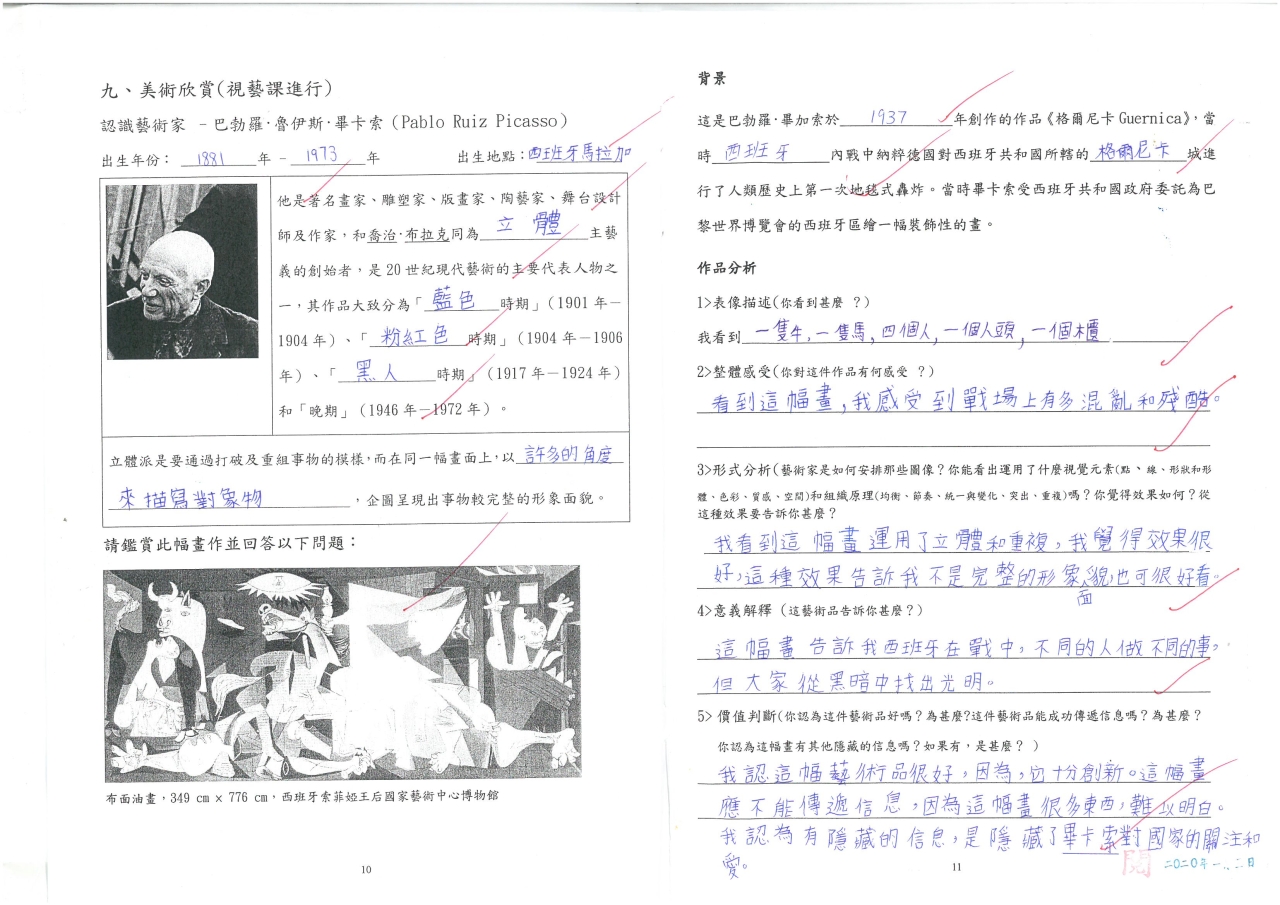 九、美術欣賞(視藝課進行)
認識藝術家 – 巴勃羅·魯伊斯·畢卡索 (Pablo Ruiz Picasso)
出生年份： 1881 年 – 1973 年 出生地點：西班牙馬拉加
他是著名畫家、雕塑家、版畫家、陶藝家、舞台設計
師及作家，和喬治·布拉克同為 立體 主藝
義的創始者，是 20 世紀現代藝術的主要代表人物之
一，其作品大致分為「 藍色 時期」(1901 年－
1904 年)、「 粉紅色 時期」(1904 年－1906
年)、「 黑人 時期」(1917 年－1924 年)
和「晚期」(1946 年－1972 年)。
立體派是要通過打破及重組事物的模樣，而在同一幅畫面上，以 許多的角度
來描寫對象物 ，企圖呈現出事物較完整的形象面貌。
請鑑賞此幅畫作並回答以下問題：
布面油畫，349 cm × 776 cm，西班牙索菲婭王后國家藝術中心博物館
10
背景
這是巴勃羅·畢加索於 1937 年創作的作品《格爾尼卡 Guernica》，當
時 西班牙 內戰中納粹德國對西班牙共和國所轄的 格爾尼卡 城進
行了人類歷史上第一次地毯式轟炸。當時畢卡索受西班牙共和國政府委託為巴
黎世界博覽會的西班牙區繪一幅裝飾性的畫。
作品分析
1>表像描述(你看到甚麼 ？)
我看到 一隻牛，一隻馬，四個人，一個人頭，一個木櫃
2>整體感受(你對這件作品有何感受 ？)
看到這幅畫，我感受到戰場上有多混亂和殘酷。
3>形式分析(藝術家是如何安排那些圖像？你能看出運用了什麼視覺元素(點、線、形狀和形
體、色彩、質感、空間)和組織原理(均衡、節奏、統一與變化、突出、重複)嗎？你覺得效果如何？從
這種效果要告訴你甚麼？)
我看到這幅畫運用了立體和重複，我覺得效果很
好，這種效果告訴我不是完整的形象面貌也可很好看。
4>意義解釋 (這藝術品告訴你甚麼？)
這幅畫告訴我西班牙在戰中，不同的人做不同的事，
但大家從黑暗中找出光明。
5> 價值判斷(你認為這件藝術品好嗎？為甚麼?這件藝術品能成功傳遞信息嗎？為甚麼？
你認為這幅畫有其他隱藏的信息嗎？如果有，是甚麼？ )
我認這幅藝術品很好，因為，它十分創新。這幅畫
應不能傳遞信息，因為這幅畫很多東西，難以明白。
我認為有隱藏的信息，是隱藏了畢卡索對國家的關注和
愛。
閱
11